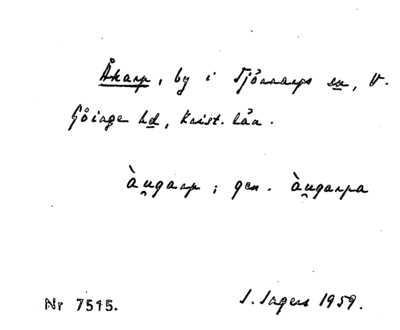 Åkarp, by i Tjörnarps sn, V.
Göinge hd, Krist. län.
àu̯garp; gen. àu̯garpa
Nr 7515. I. Ingers 1959.